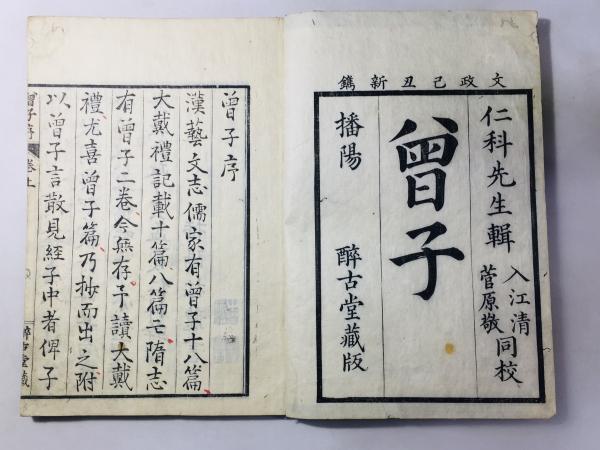 文政己丑新鐫
仁科先生輯
入江清
菅原敬
同校
曾子
播陽
醉古堂藏版
曾子序
漢藝文志儒家有曾子十八篇
大戴禮記載十篇八篇亡隋志
有曾子二卷今無存予讀大戴
禮尤喜曾子篇乃抄而出之附
以曾子言散見經子中者俾子
曾子序
卷上
醉古堂藏